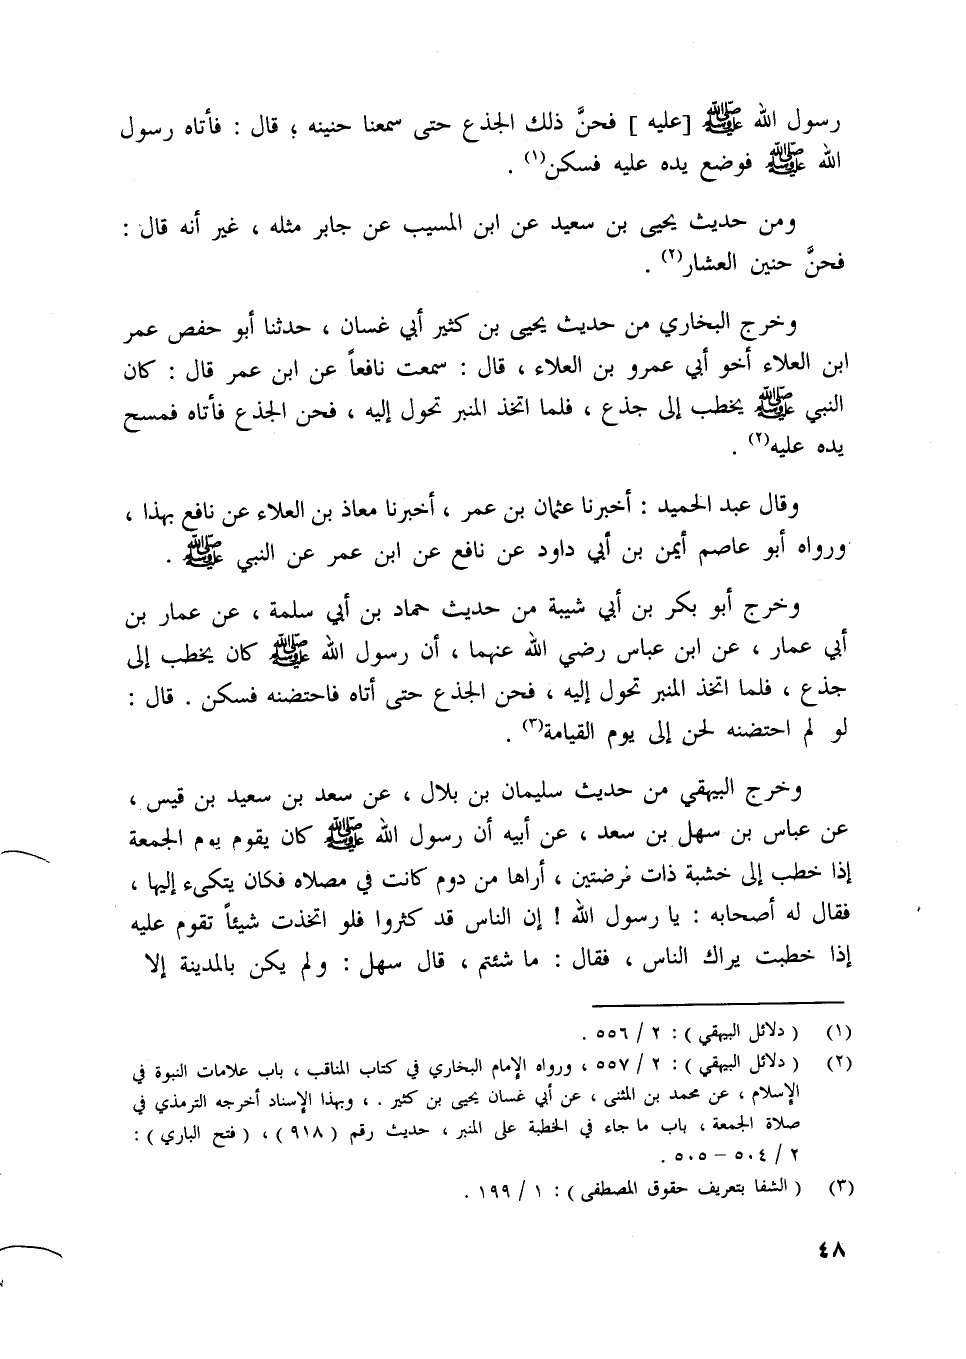 رسول الله ﷺ [ عليه ] فحنَّ ذلك الجذع حتى سمعنا حنينه ؛ قال : فأتاه رسول
الله ﷺ فوضع يده عليه فسكن(١) .
ومن حديث يحيى بن سعيد عن ابن المسيب عن جابر مثله ، غير أنه قال :
فحنَّ حنين العشار(٢) .
وخرج البخاري من حديث يحيى بن كثير أبي غسان ، حدثنا أبو حفص عمر
ابن العلاء أخو أبي عمرو بن العلاء ، قال : سمعت نافعاً عن ابن عمر قال : كان
النبي ﷺ يخطب إلى جذع ، فلما اتخذ المنبر تحول إليه ، فحن الجذع فأتاه فمسح
يده عليه(٢) .
وقال عبد الحميد : أخبرنا عثمان بن عمر ، أخبرنا معاذ بن العلاء عن نافع بهذا ،
ورواه أبو عاصم أيمن بن أبي داود عن نافع عن ابن عمر عن النبي ﷺ .
وخرج أبو بكر بن أبي شيبة من حديث حماد بن أبي سلمة ، عن عمار بن
أبي عمار ، عن ابن عباس رضي الله عنهما ، أن رسول الله ﷺ كان يخطب إلى
جذع ، فلما اتخذ المنبر تحول إليه ، فحن الجذع حتى أتاه فاحتضنه فسكن . قال :
لو لم احتضنه لحن إلى يوم القيامة(٣) .
وخرج البيهقي من حديث سليمان بن بلال ، عن سعد بن سعيد بن قيس ،
عن عباس بن سهل بن سعد ، عن أبيه أن رسول الله ﷺ كان يقوم يوم الجمعة
إذا خطب إلى خشبة ذات فرضتين ، أراها من دوم كانت في مصلاه فكان يتكىء إليها ،
فقال له أصحابه : يا رسول الله ! إن الناس قد كثروا فلو اتخذت شيئاً تقوم عليه
إذا خطبت يراك الناس ، فقال : ما شئتم ، قال سهل : ولم يكن بالمدينة إلا
(١) ( دلائل البيهقي ) : ٢ / ٥٥٦ .
(٢) ( دلائل البيهقي ) : ٢ / ٥٥٧ ، ورواه الإمام البخاري في كتاب المناقب ، باب علامات النبوة في
الإسلام ، عن محمد بن المثنى ، عن أبي غسان يحيى بن كثير . ، وبهذا الإسناد أخرجه الترمذي في
صلاة الجمعة ، باب ما جاء في الخطبة على المنبر ، حديث رقم ( ٩١٨ ) ، ( فتح الباري ) :
٢ / ٥٠٤ – ٥٠٥ .
(٣) ( الشفا بتعريف حقوق المصطفى ) : ١ / ١٩٩ .
٤٨